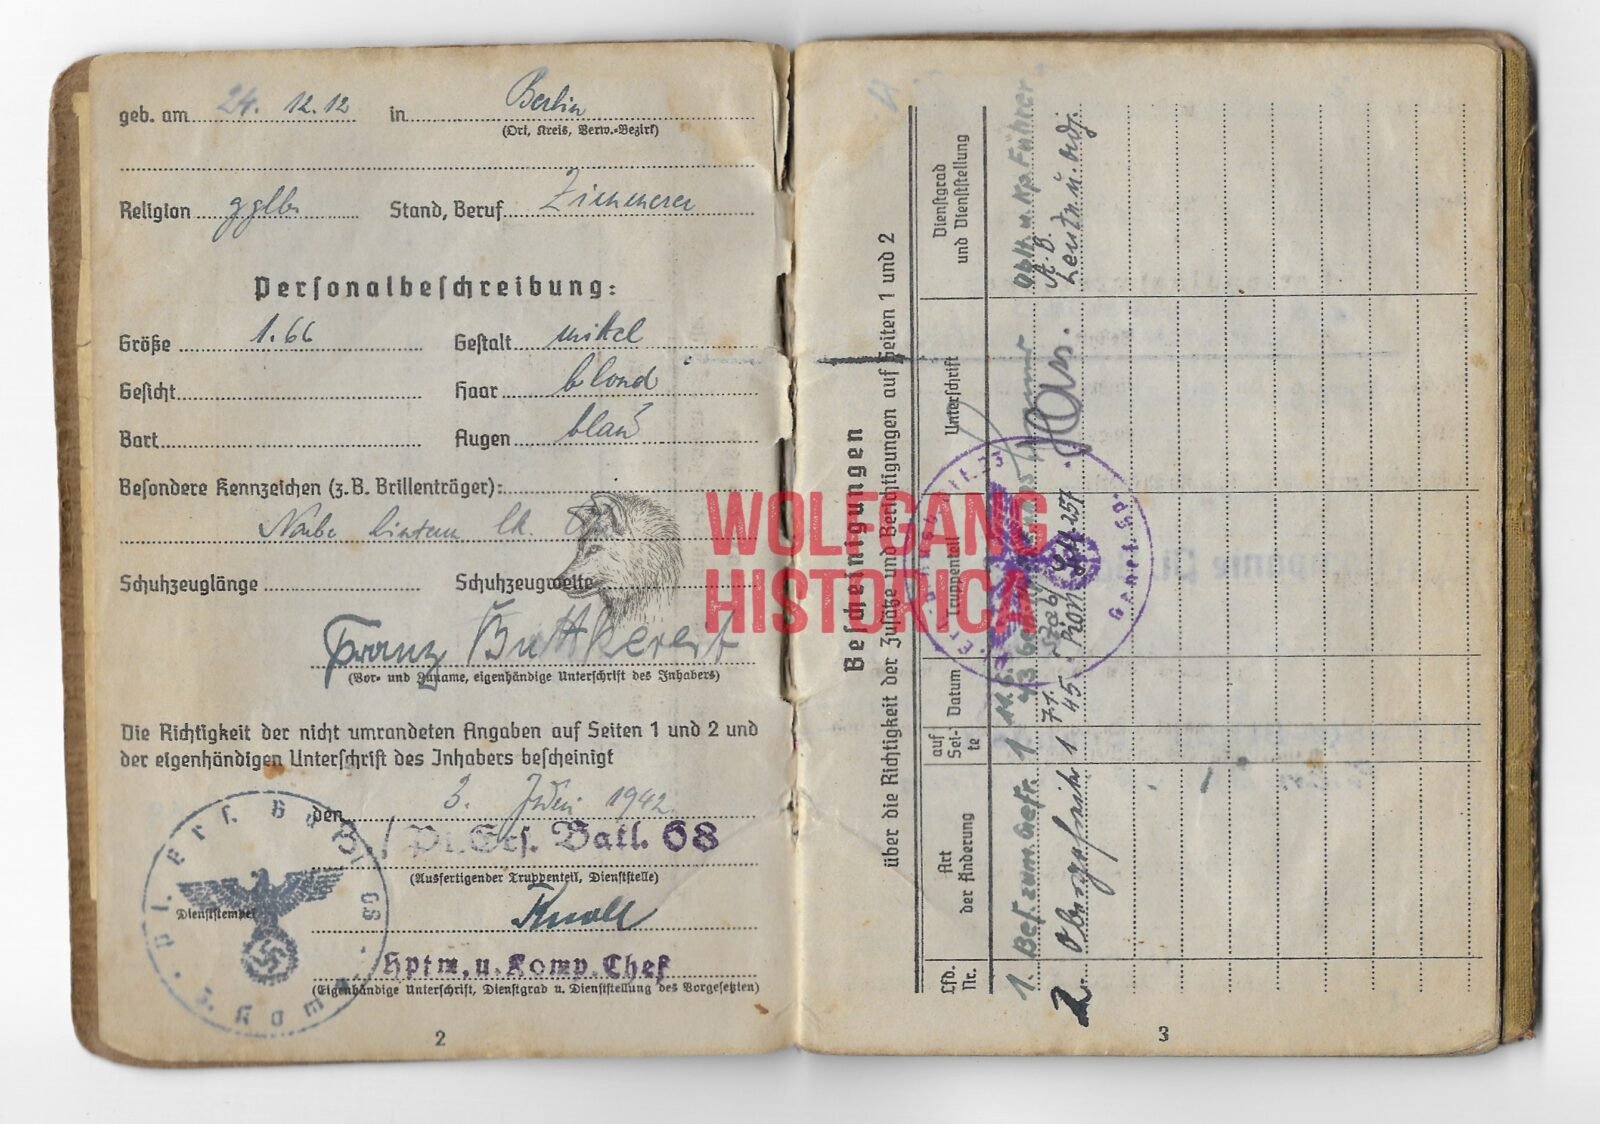 geb. am 24. 12. 12 in Berlin
(Ort, Kreis, Verw.-Bezirk)
Religion gglbr Stand, Beruf Zimmerer
Personalbeschreibung:
Größe 1.66 Gestalt mittel
Gesicht Haar blond
Bart Augen blau
Besondere Kennzeichen (z.B. Brillenträger):
Narbe hinterm lk.
Schuhzeuglänge Schuhzeugweite
Franz Buttkereit
(Vor- und Zuname, eigenhändige Unterschrift des Inhabers)
Die Richtigkeit der nicht umrandeten Angaben auf Seiten 1 und 2 und
der eigenhändigen Unterschrift des Inhabers bescheinigt
den 3. 1942
3./Pi.Ers. Batl. 68
(Ausfertigender Truppenteil, Dienststelle)
Dienststempel
Knoll
Hptm. u. Komp. Chef
(Eigenhändige Unterschrift, Dienstgrad u. Dienststellung des Vorgesetzten)
Pi. Ers. Batl. 68
3. Komp.
2
WOLFGANG
HISTORICA
Bescheinigungen
über die Richtigkeit der Zusätze und Berichtigungen auf Seiten 1 und 2
Lfd. Nr. Art der Änderung auf Seite Datum Truppenteil Unterschrift Dienstgrad und Dienststellung
1. Bef. zum Gefr. 1 11.6. 43 Oblt. u. Kp. Führer
2. Obergefreiter 1 7.1. 45 A.B. Leutn. u. Adj.
3